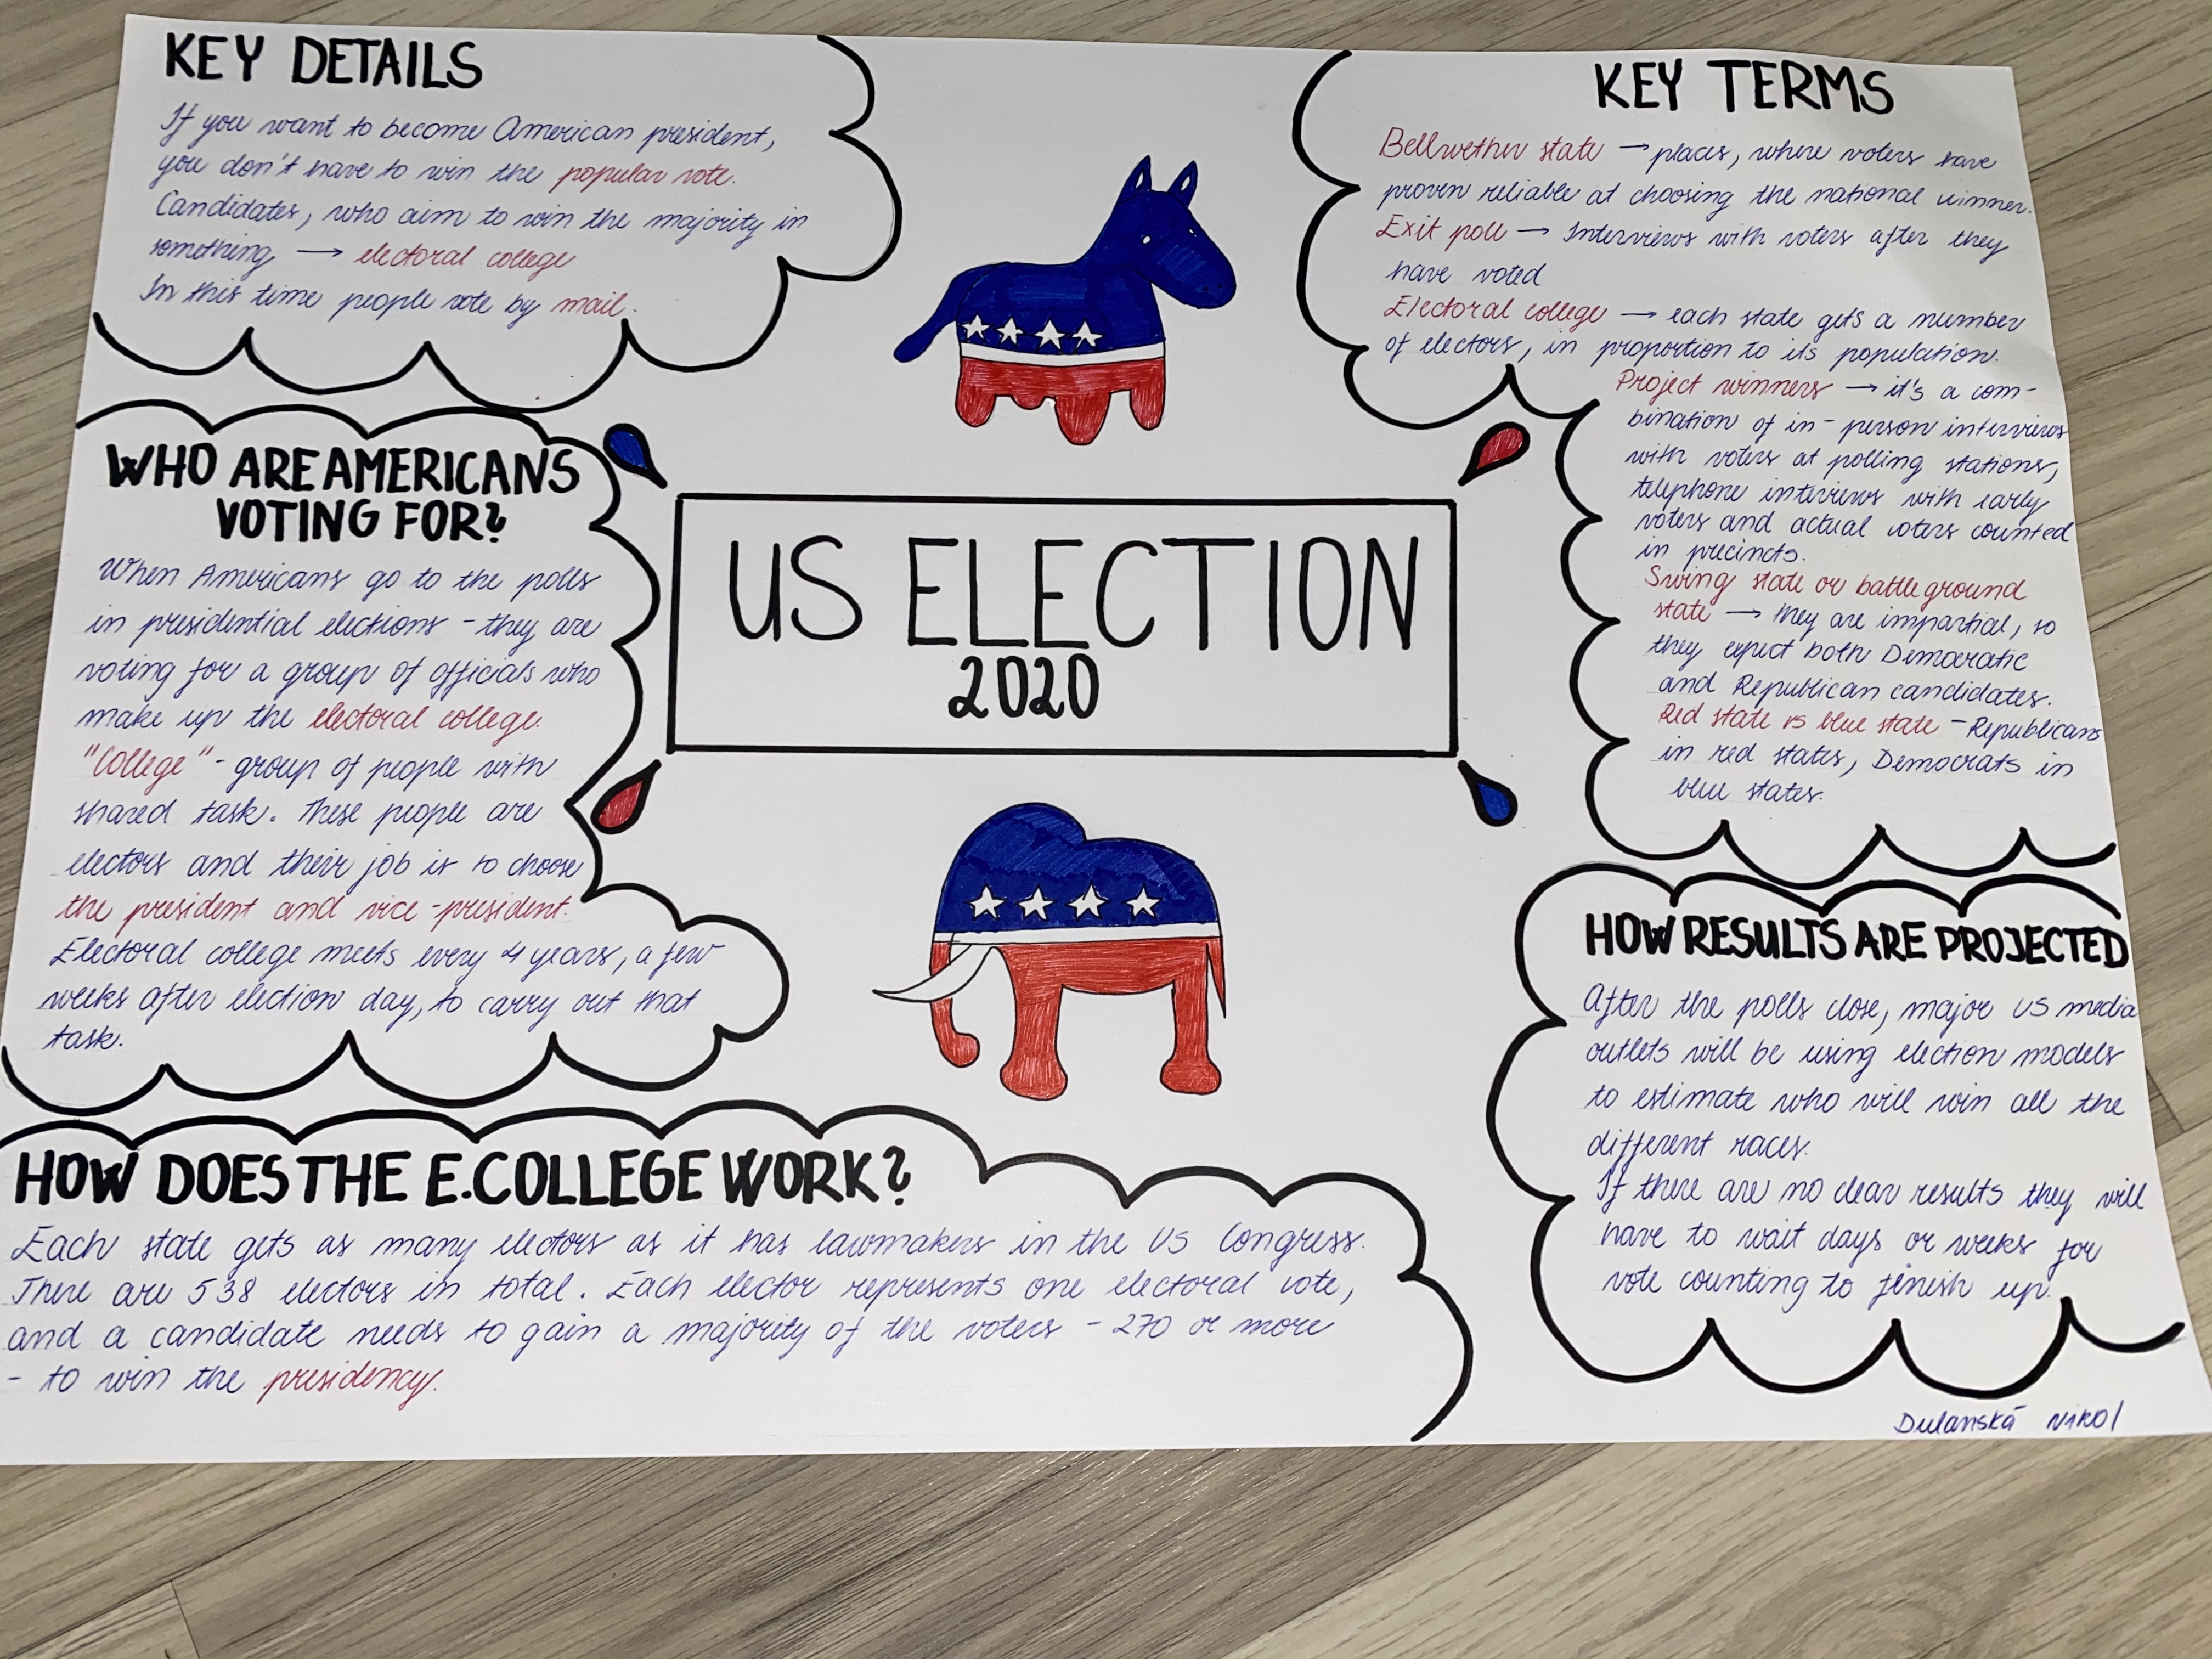 KEY DETAILS
If you want to become American president,
you don't have to win the popular vote.
Candidates, who aim to win the majority in
something → electoral college
In this time people vote by mail.
WHO ARE AMERICANS
VOTING FOR?
When Americans go to the polls
in presidential elections - they are
voting for a group of officials who
make up the electoral college.
"College" - group of people with
shared task. These people are
electors and their job is to choose
the president and vice-president.
Electoral college meets every 4 years, a few
weeks after election day, to carry out that
task.
HOW DOES THE E.COLLEGE WORK?
Each state gets as many electors as it has lawmakers in the US Congress.
There are 538 electors in total. Each elector represents one electoral vote,
and a candidate needs to gain a majority of the voters - 270 or more
- to win the presidency.
US ELECTION
2020
KEY TERMS
Bellwether state → places, where voters have
proven reliable at choosing the national winner.
Exit poll → Interviews with voters after they
have voted
Electoral college → each state gets a number
of electors, in proportion to its population.
Project winners → it's a com-
bination of in-person interviews
with voters at polling stations,
telephone interviews with early
voters and actual voters counted
in precincts.
Swing state or battleground
state → they are impartial, so
they expect both Democratic
and Republican candidates.
Red state vs blue state - Republicans
in red states, Democrats in
blue states.
HOW RESULTS ARE PROJECTED
After the polls close, major US media
outlets will be using election models
to estimate who will win all the
different races.
If there are no clear results they will
have to wait days or weeks for
vote counting to finish up.
Dulanská Nikol